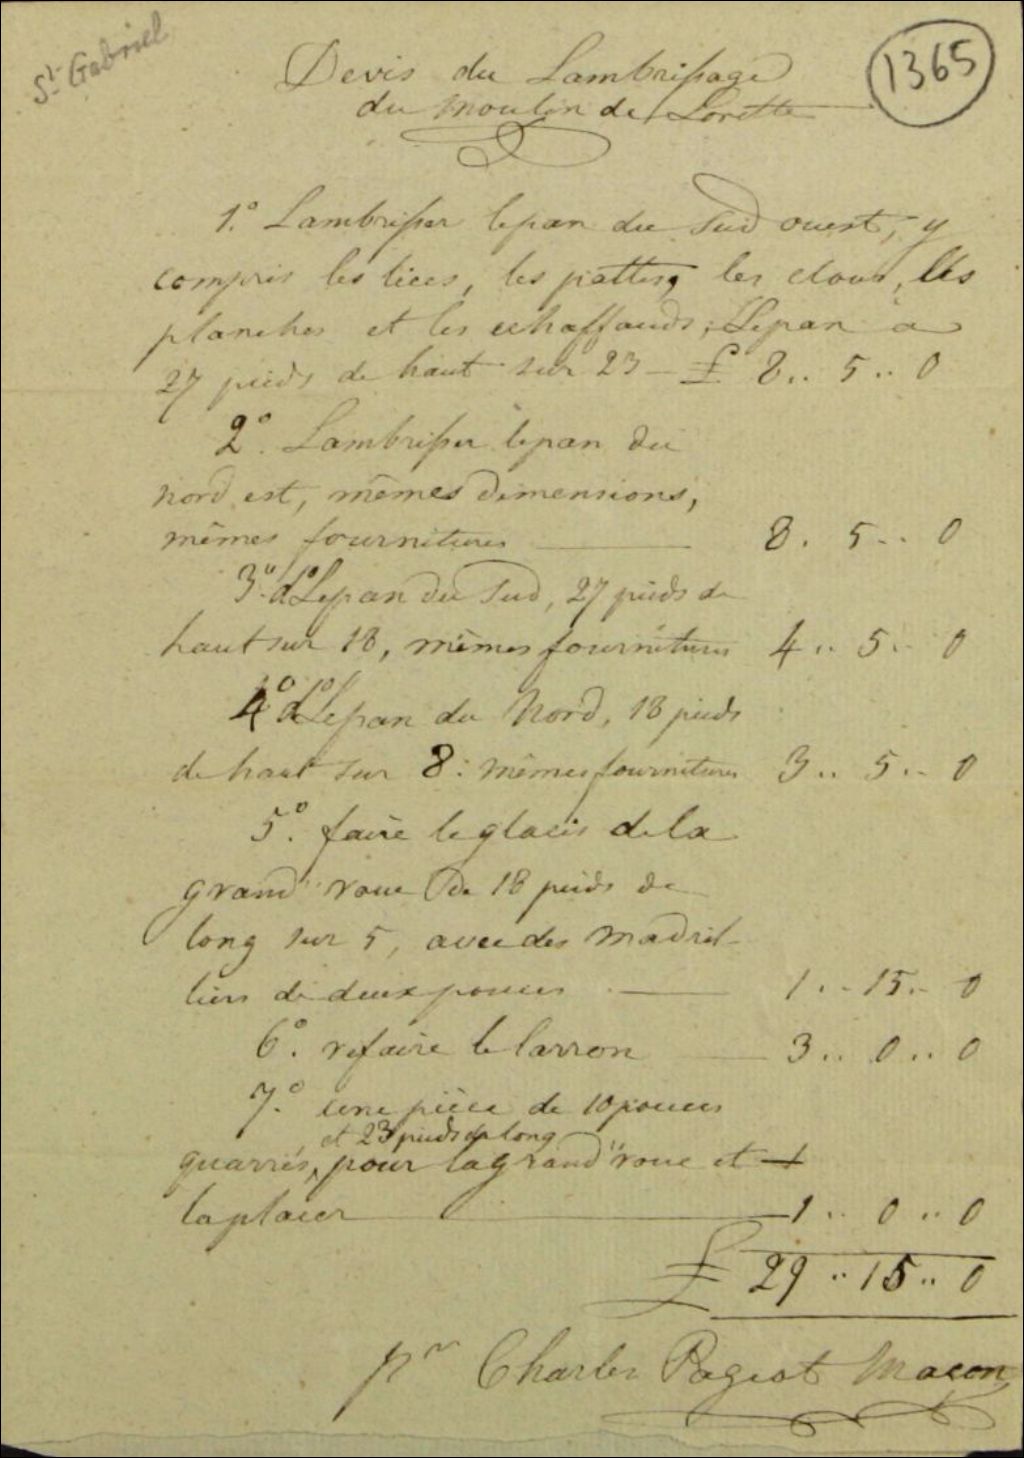 St Gabriel
1365
Devis du Lambrissage
du moulin de Lorette
1.° Lambrisser lepan du Sud ouest, y
compris les lices, les pattes, les clous, les
planches et les echaffauds; Lepan a
27 pieds de haut sur 23 — £ 8.. 5.. 0
2.° Lambrisser lepan du
nord est, mêmes dimensions,
mêmes fournitures — 8. 5.. 0
3.° d° Lepan du Sud, 27 pieds de
haut sur 18, mêmes fournitures 4.. 5.. 0
4° d° Lepan du Nord, 18 pieds
de haut sur 8: mêmes fournitures 3.. 5.. 0
5.° faire le glacis de la
grand" roue de 18 pieds de
long sur 5, avec des madril-
liers de deux pouces — 1.. 15.. 0
6.° refaire le larron — 3.. 0.. 0
7.° une pièce de 10 pouces
et 23 pieds de long
quarrés, pour la grand" roue et
la placer — 1.. 0.. 0
£ 29.. 15.. 0
pr Charles Pageot Maçon